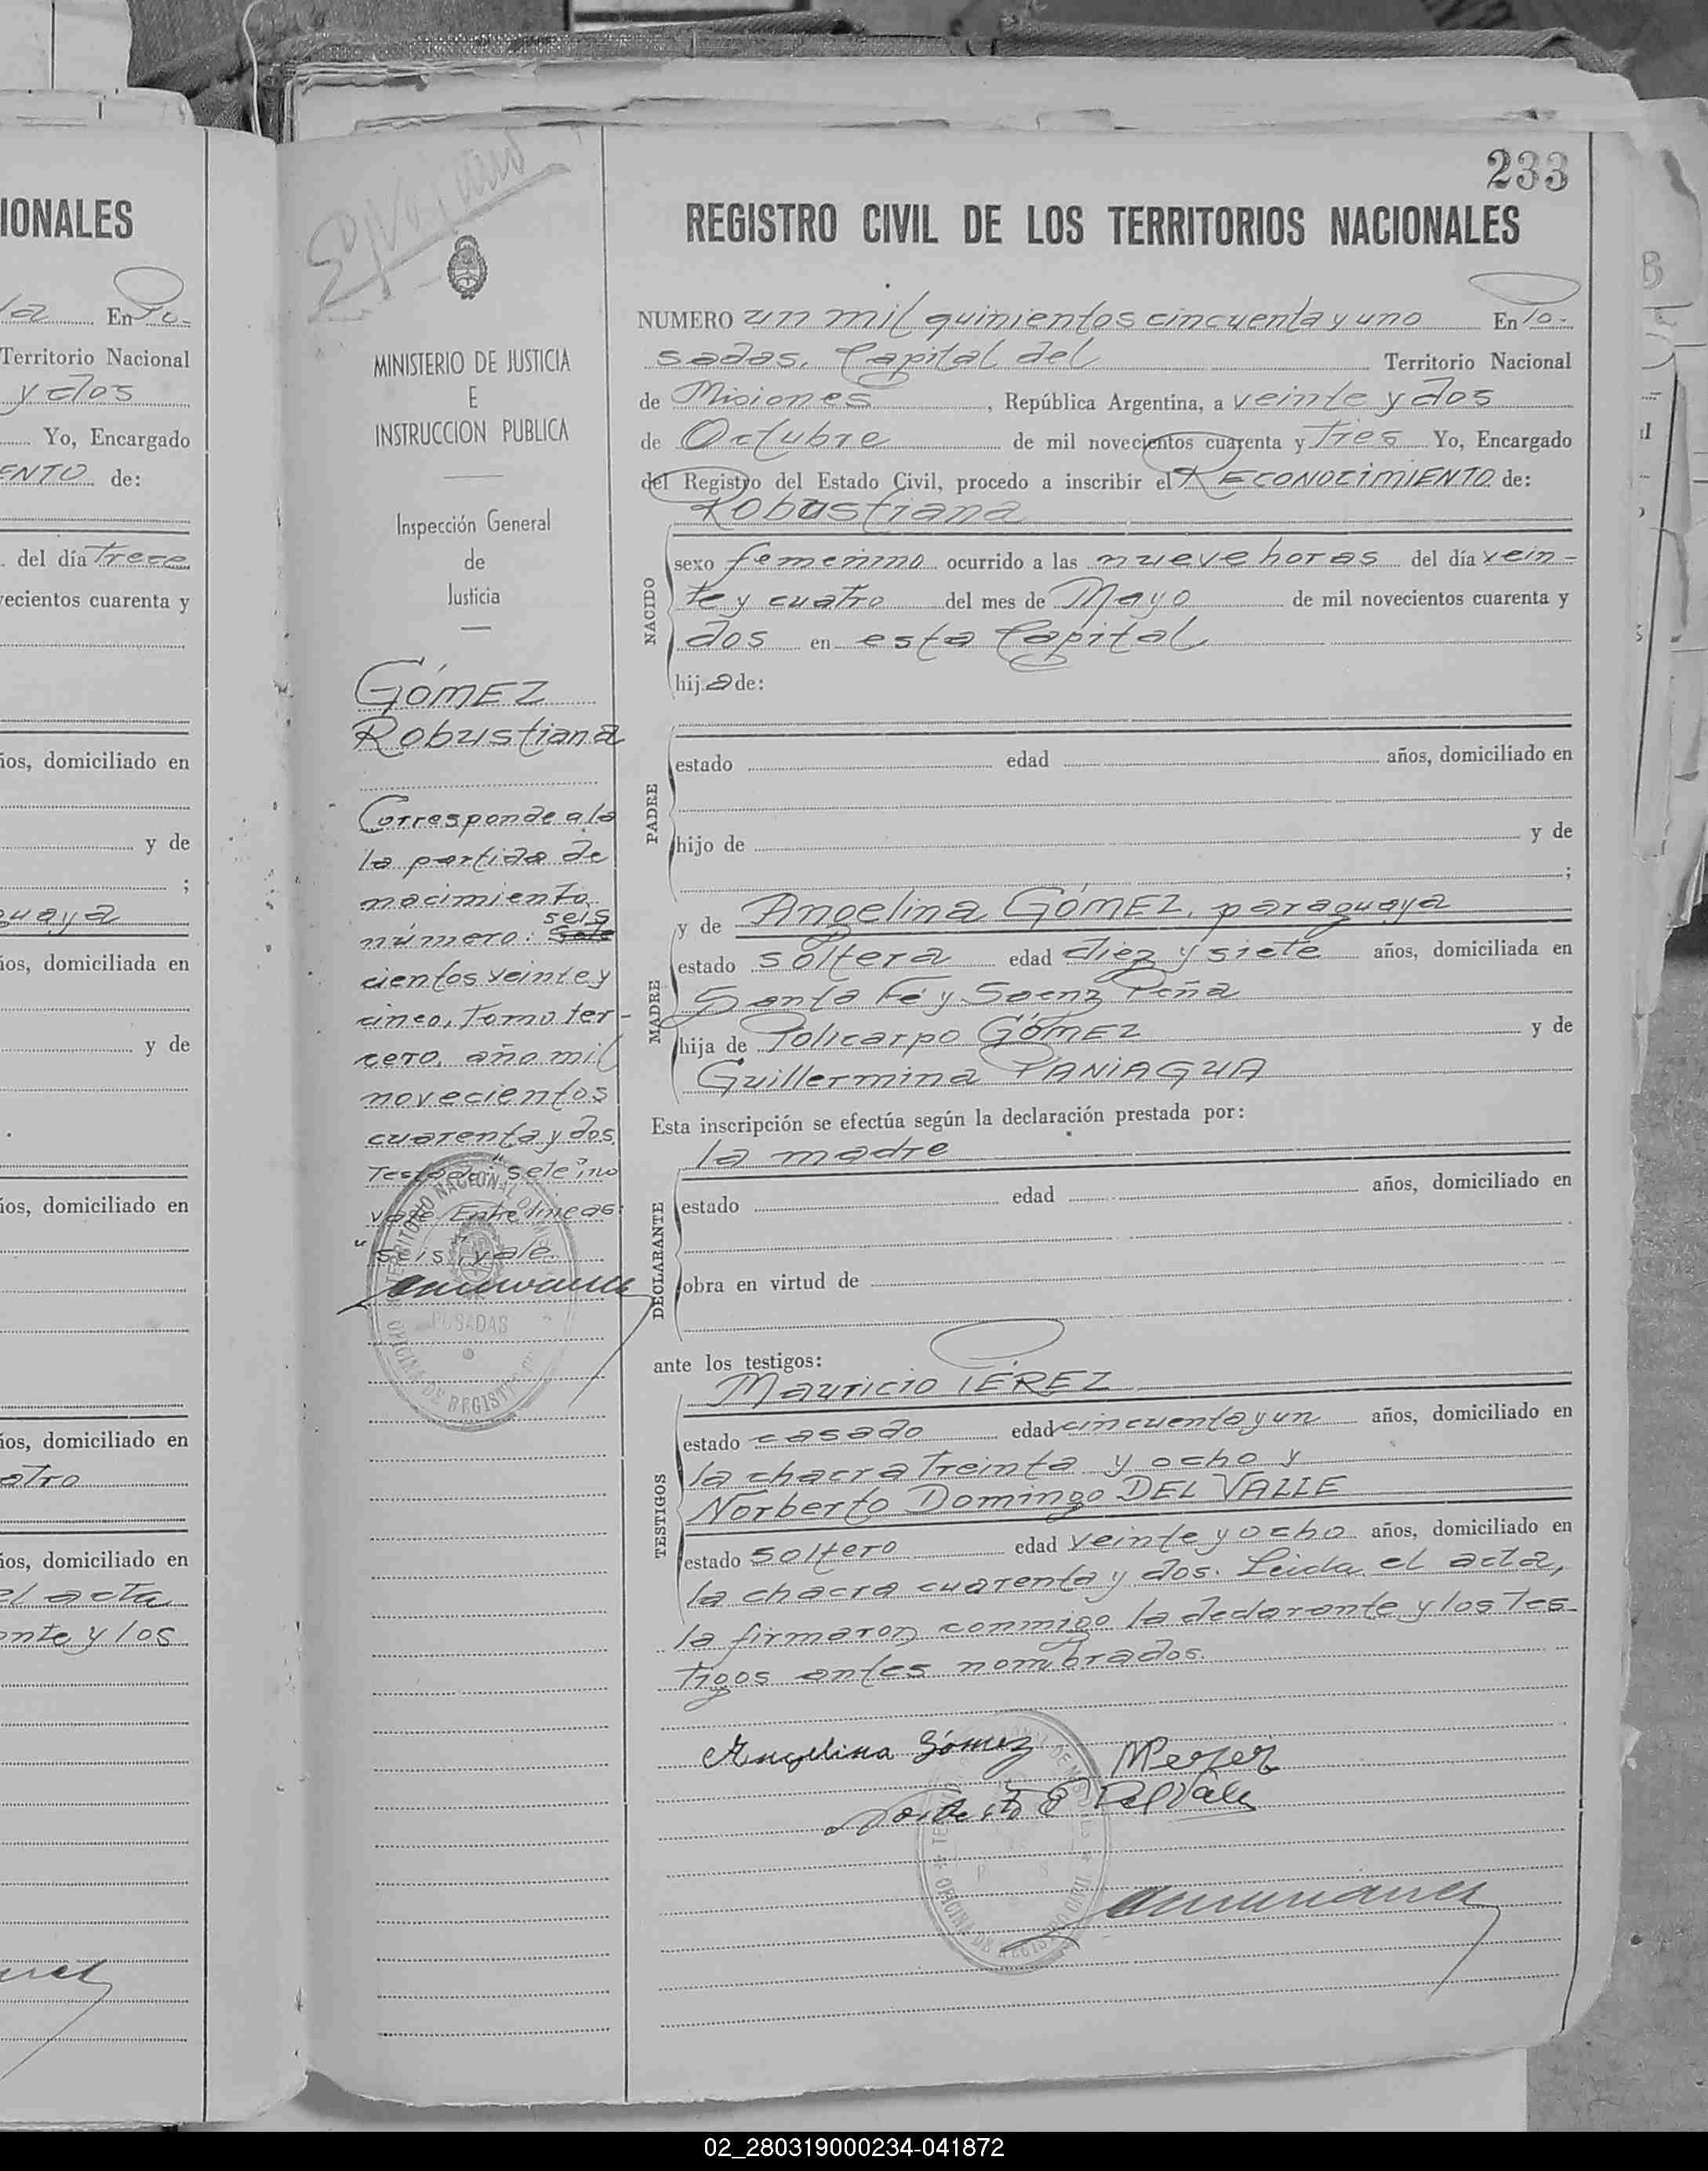 IONALES
En Po-
Territorio Nacional
y dos
Yo, Encargado
ENTO de:
del día trece
ecientos cuarenta y
ios, domiciliado en
y de
;
guaya
ios, domiciliada en
y de
ios, domiciliado en
ios, domiciliado en
atro
ios, domiciliado en
el acta
ante y los
MINISTERIO DE JUSTICIA
E
INSTRUCCION PUBLICA
Inspección General
de
Justicia
GÓMEZ
Robustiana
Corresponde a la
la partida de
nacimiento
seis
número: Sete
cientos veinte y
cinco, Tomo ter-
cero, año mil
novecientos
cuarenta y dos.
Testado: "Sete" no
vale. Entre líneas:
"seis", vale.
TERRITORIO NACIONAL DE MISIONES
POSADAS
OFICINA DE REGISTRO CIVIL
233
REGISTRO CIVIL DE LOS TERRITORIOS NACIONALES
NUMERO un mil quinientos cincuenta y uno En Po-
sadas, Capital del Territorio Nacional
de Misiones, República Argentina, a veinte y dos
de Octubre de mil novecientos cuarenta y tres Yo, Encargado
del Registro del Estado Civil, procedo a inscribir el RECONOCIMIENTO de:
Robustiana
NACIDO
sexo femenino ocurrido a las nueve horas del día vein-
te y cuatro del mes de Mayo de mil novecientos cuarenta y
dos en esta Capital
hija de:
PADRE
estado edad años, domiciliado en
hijo de y de
;
MADRE
y de Angelina GÓMEZ, paraguaya
estado soltera edad diez y siete años, domiciliada en
Santa Fé y Saenz Peña
hija de Policarpo GÓMEZ y de
Guillermina PANIAGUA
Esta inscripción se efectúa según la declaración prestada por:
la madre
DECLARANTE
estado edad años, domiciliado en
obra en virtud de
ante los testigos:
TESTIGOS
Mauricio PÉREZ
estado casado edad cincuenta y un años, domiciliado en
la chacra treinta y ocho y
Norberto Domingo DEL VALLE
estado soltero edad veinte y ocho años, domiciliado en
la chacra cuarenta y dos. Leida el acta,
la firmaron conmigo la declarante y los tes-
tigos antes nombrados.
Angelina Gómez MPerez
Norberto D DelValle
OFICINA DE REGISTRO CIVIL
02_280319000234-041872